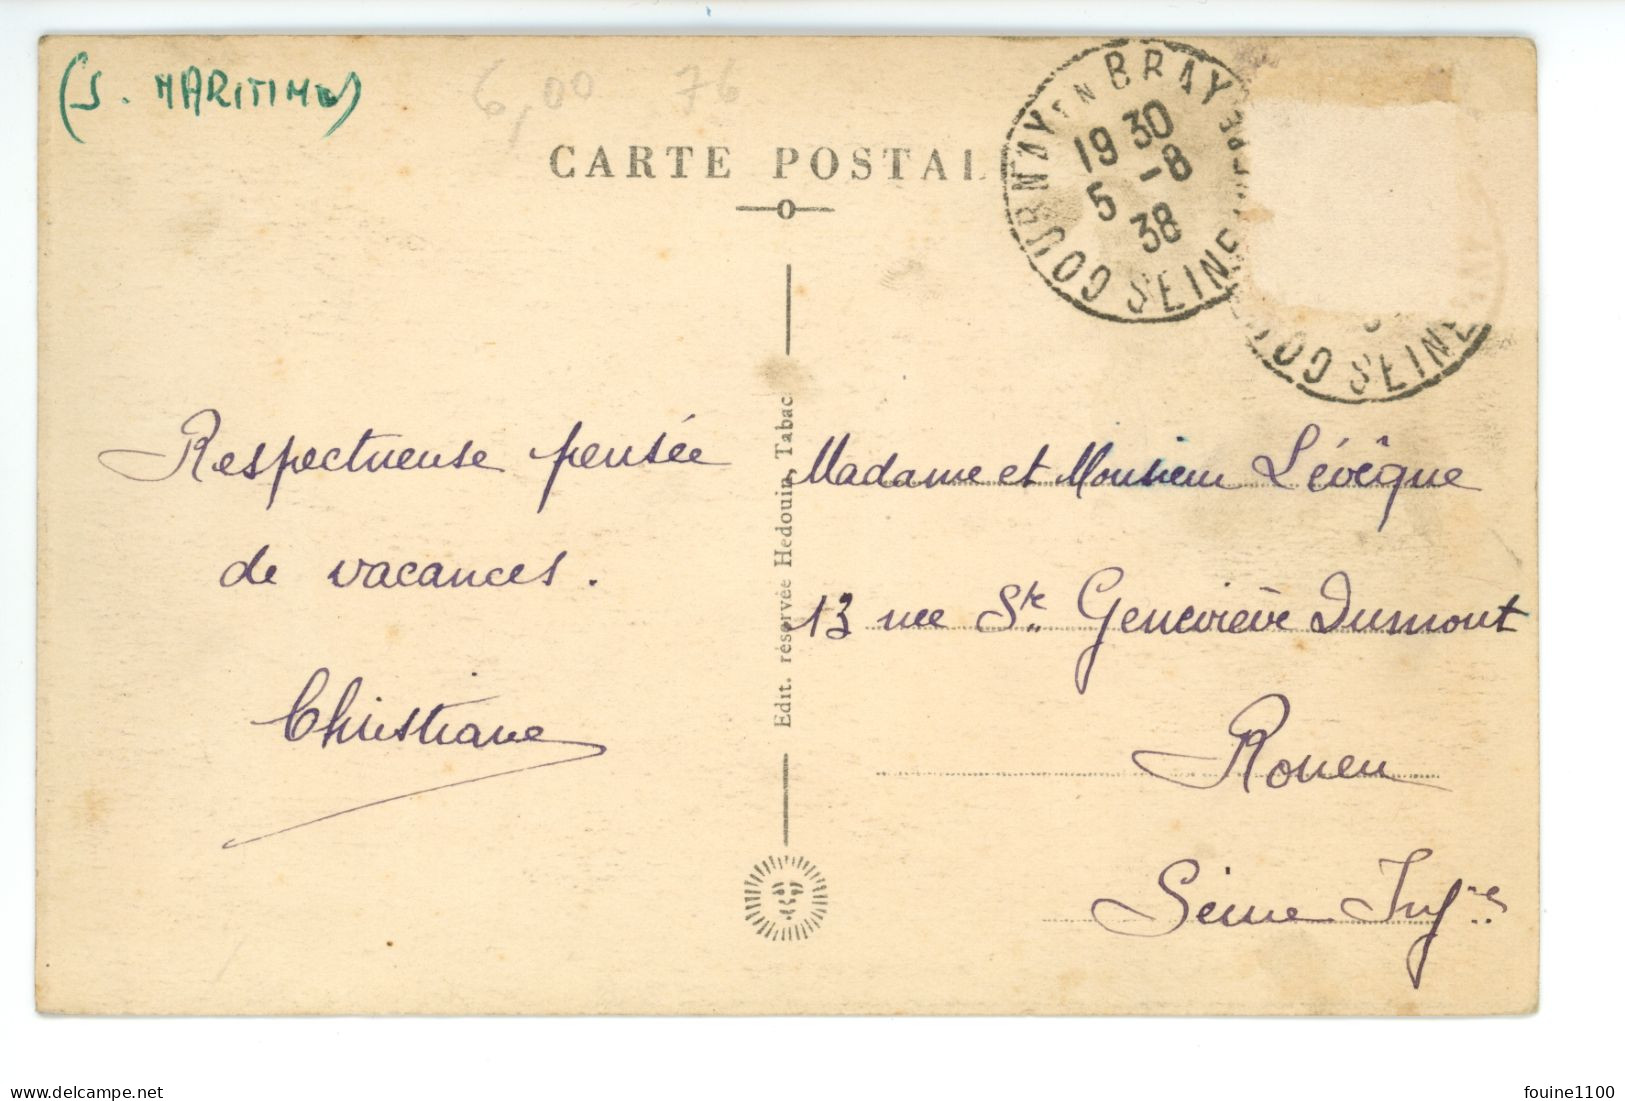 (S. MARITIME)
6,00 76
CARTE POSTAL
GOURNAY EN BRAY
SEINE INFRE
19 30
5 -8
38
GOU SEINE
Edit. réservée Hedouin, Tabac
Respectueuse pensée
de vacances.
Christiane
Madame et Monsieur Lévêque
13 rue Ste Geneviève Dumont
Rouen
Seine Infre
delcampe.net
fouine1100